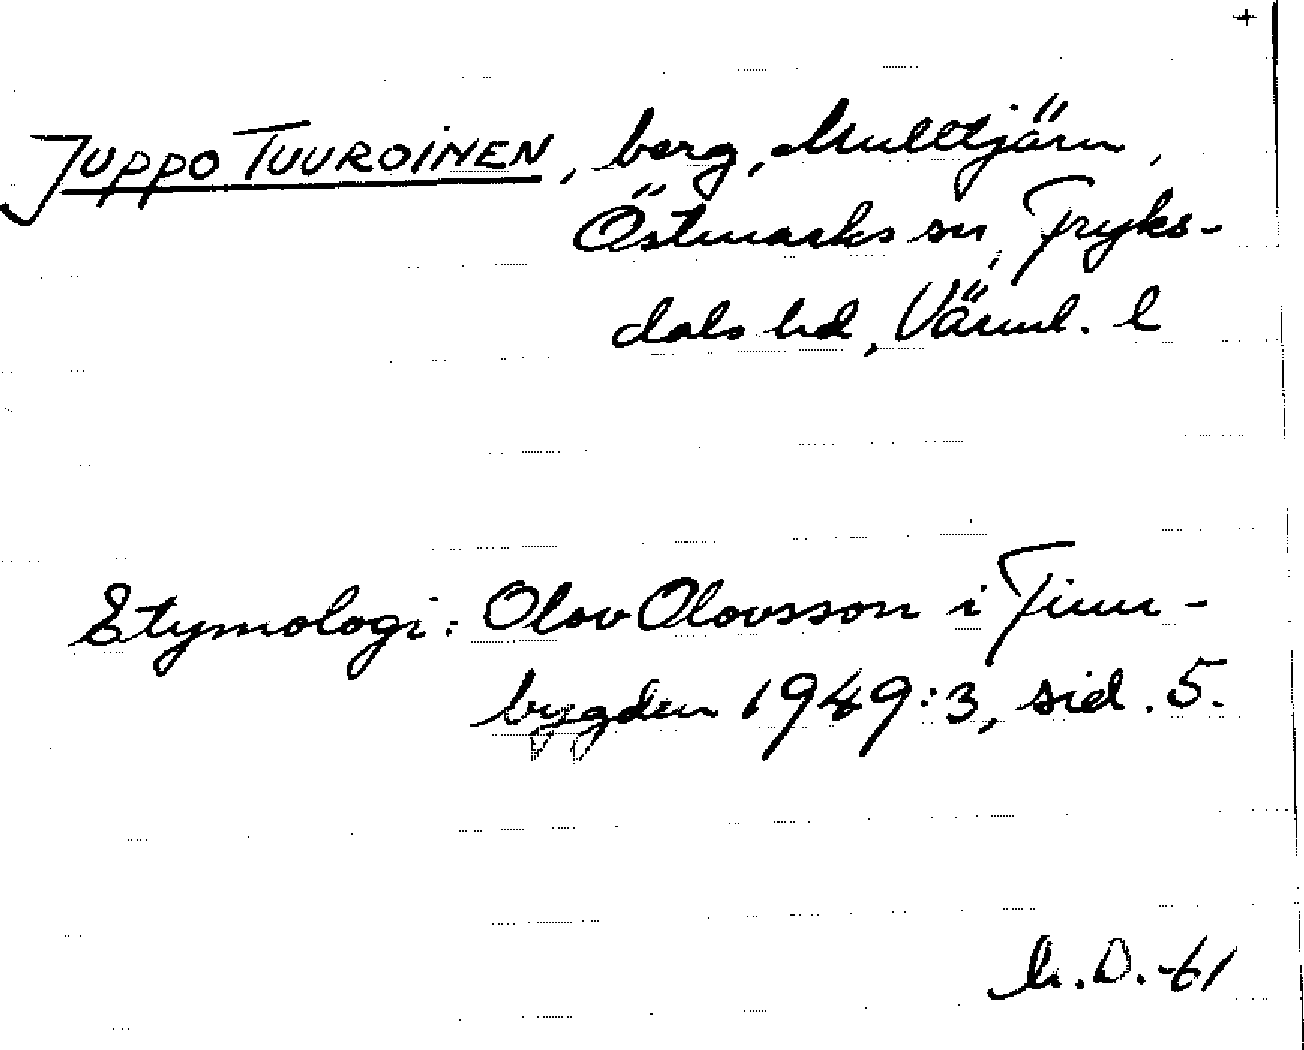 +
JUPPO TUUROINEN, berg, Mulltjärn,
Östmarks sn, Fryks-
dals hd, Värml. l
Etymologi: Olov Olovsson i Finn-
bygden 1949:3, sid. 5.
D. -61